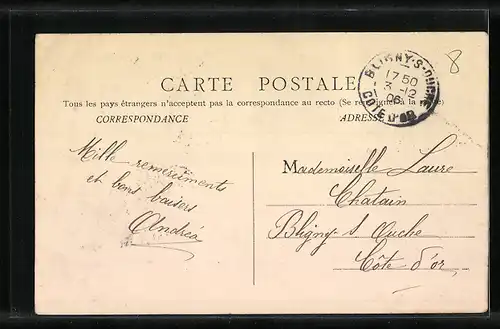 8
BLIGNY-S-OUCHE
17 50
3 -12
06
COTE D'OR
CARTE POSTALE
Tous les pays étrangers n'acceptent pas la correspondance au recto (Se renseigner à la poste)
CORRESPONDANCE
ADRESSE
Mille remerciments
et bons baisers
Andréa
Mademoiselle Laure
Chatain
Bligny-s Ouche
Côte d'or